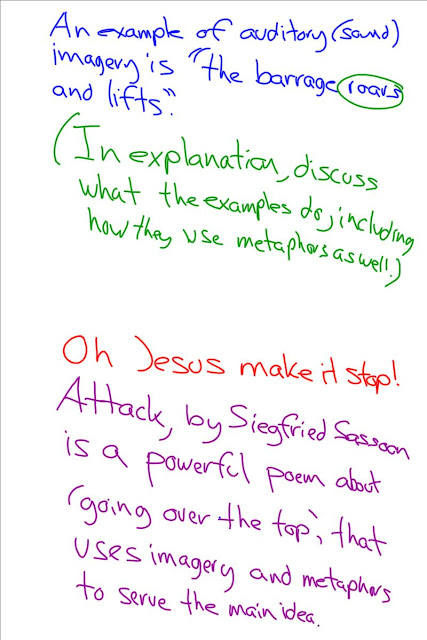 An example of auditory (sound)
imagery is "the barrage roars
and lifts".
(In explanation, discuss
what the examples do, including
how they use metaphors as well.)
Oh Jesus make it stop!
Attack, by Siegfried Sassoon
is a powerful poem about
'going over the top', that
uses imagery and metaphors
to serve the main idea.